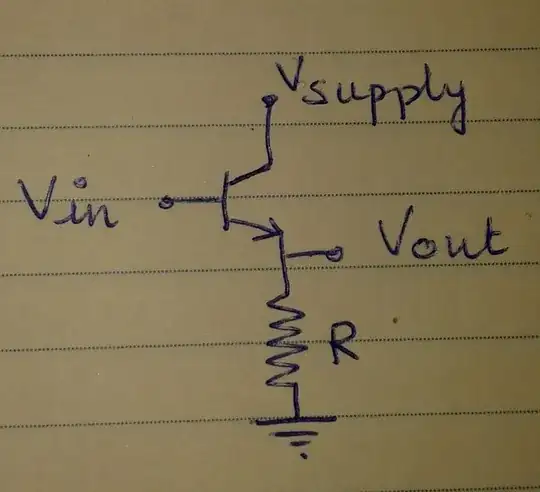 Vsupply
Vin
Vout
R